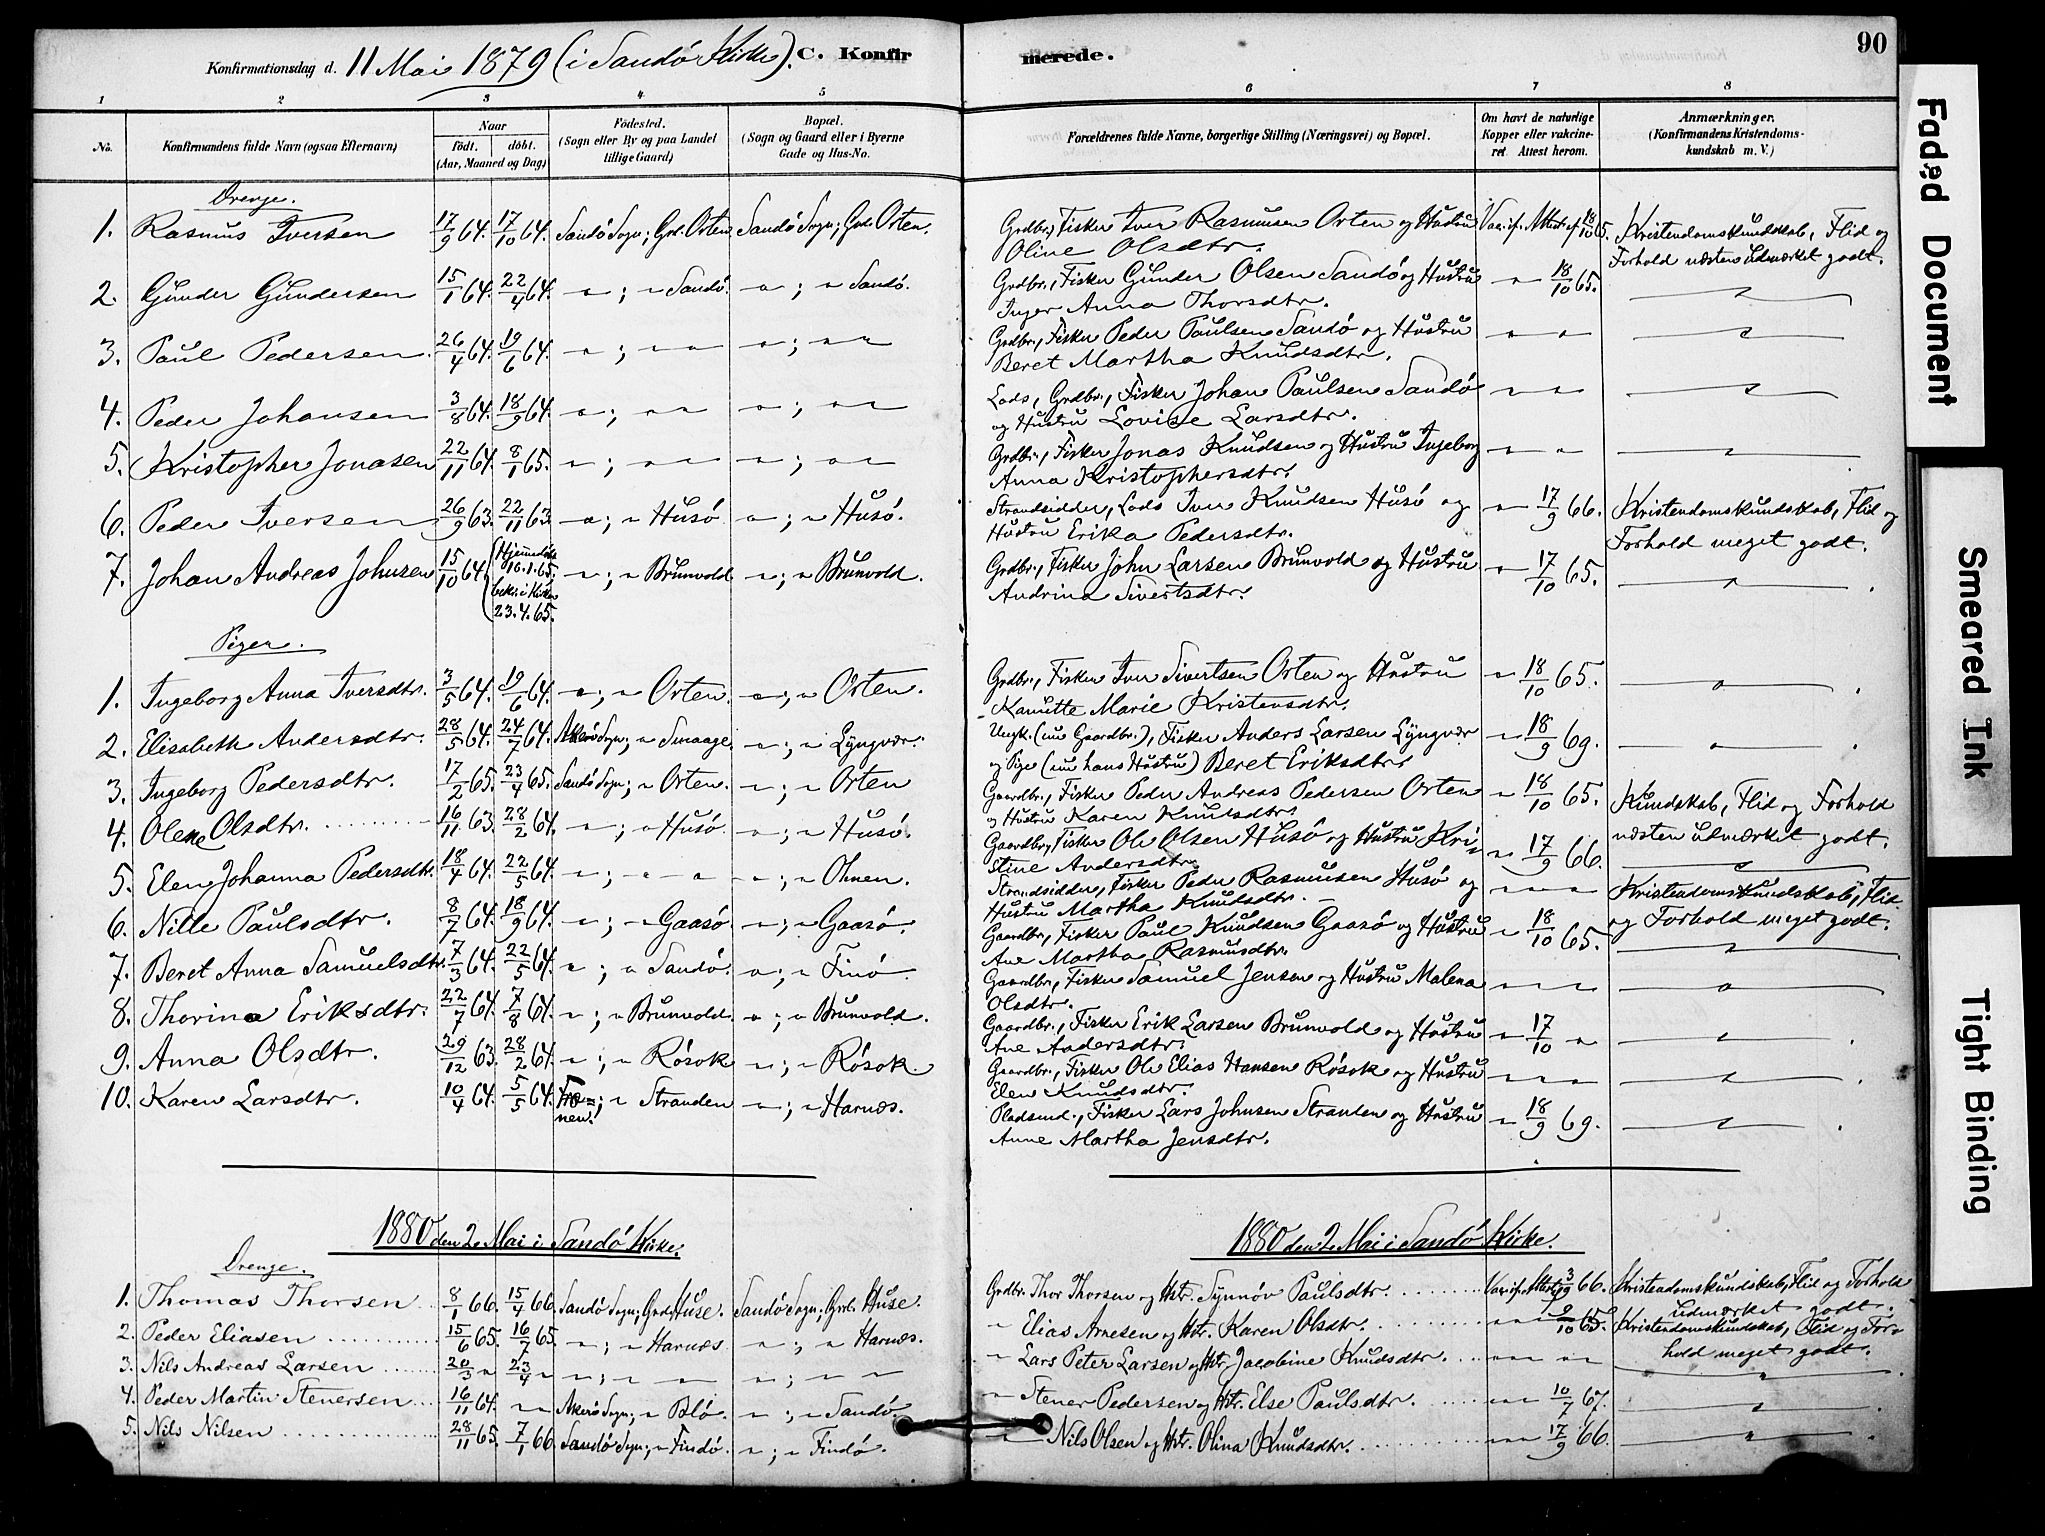 90
Konfirmationsdag d. 11 Mai 1879 (i Sandö Kirke). C. Konfirmerede.
1 2 3 4 5 6 7 8
No. Konfirmandens fulde Navn (ogsaa Efternavn) Naar födt. döbt. (Aar, Maaned og Dag) Födested. (Sogn eller By og paa Landet tillige Gaard) Bopæl. (Sogn og Gaard eller i Byerne Gade og Hus-No. Forældrenes fulde Navne, borgerlige Stilling (Næringsvei) og Bopæl. Om havt de naturlige Kopper eller vakcineret. Attest herom. Anmærkninger. (Konfirmandens Kristendomskundskab m. V.)
Drenge.
1. Rasmus Iversen 17/9 64. 17/10 64. Sandö Sogn; Grd. Orten Sandö Sogn; Grd. Orten. Grdbr., Fisker Iver Rasmusen Orten og Hustru Oline Olsdtr. Vac. if. Attest af 18/10 65. Kristendomskundskab, Flid og Forhold næsten udmærket godt.
2. Gunder Gundersen 15/1 64. 22/4 64. " ; " Sandö. " ; " Sandö. Grdbr., Fisker Gunder Olsen Sandö og Hustru Inger Anna Thorsdtr. " 18/10 65. "
3. Paul Pedersen. 26/4 64. 19/6 64. " ; " " " ; " " Grdbr., Fisker Peder Paulsen Sandö og Hustru Beret Martha Knudsdtr. " " "
4. Peder Johansen 3/8 64. 18/9 64. " ; " " " ; " " Lods, Grdbr., Fisker Johan Paulsen Sandö og Hustru Lovise Larsdtr. " " "
5. Kristopher Jonasen 22/11 64. 8/1 65. " ; " " " ; " " Grdbr., Fisker Jonas Knudsen og Hustru Ingeborg Anna Kristophersdtr. " " "
6. Peder Iversen 26/9 63. 22/11 63. " ; " Husö " ; " Husö. Strandsidder, Lods Iver Knudsen Husö og Hustru Erika Pedersdtr. " 17/9 66. Kristendomskundskab, Flid og Forhold meget godt.
7. Johan Andreas Johnsen 15/10 64. (Hjemmedöbt 10.1.65. bekr. i Kirken 23.4.65. " ; " Brunvold " ; " Brunvold. Grdbr., Fisker John Larsen Brunvold og Hustru Andrina Sivertsdtr. " 17/10 65. "
Piger.
1. Ingeborg Anna Iversdtr. 3/5 64. 19/6 64. " ; " Orten. " ; " Orten. Grdbr., Fisker Iver Sivertsen Orten og Hustru Kanutte Marie Kristensdtr. " 18/10 65. "
2. Elisabeth Andersdtr. 28/5 64. 24/7 64. Akerö Sogn; " Smaage. " ; " Lyngvær. Ungk. (nu Gaardbr.), Fisker Anders Larsen Lyngvær og Pige (nu hans Hustru) Beret Eriksdtr. " 18/9 69. "
3. Ingeborg Pedersdtr. 17/2 65. 23/4 65. Sandö Sogn; " Orten. " ; " Orten Gaardbr., Fisker Peder Andreas Pedersen Orten og Hustru Karen Knudsdtr. " 18/10 65. Kundskab, Flid og Forhold næsten udmærket godt.
4. Olene Olsdtr. 16/11 63. 28/2 64. " ; " Husö. " ; " Husö. Gaardbr., Fisker Ole Olsen Husö og Hustru Kristine Andersdtr. " 17/9 66. "
5. Elen Johanna Pedersdtr. 18/4 64. 22/5 64. " ; " " " ; " Ohnen. Strandsidder, Fisker Peder Rasmusen Husö og Hustru Martha Knudsdtr. " " " Kristendomskundskab, Flid og Forhold meget godt.
6. Nille Paulsdtr. 8/7 64. 18/9 64. " ; " Gaasö " ; " Gaasö. Gaardbr., Fisker Paul Knudsen Gaasö og Hustru Ane Martha Rasmusdtr. " 18/10 65. "
7. Beret Anna Samuelsdtr. 7/3 64. 22/5 64. " ; " Sandö. " ; " Finö Gaardbr., Fisker Samuel Jensen og Hustru Malena Olsdtr. " " " "
8. Thorina Eriksdtr. 22/7 64. 7/8 64. " ; " Brunvold. " ; " Brunvold. Gaardbr., Fisker Erik Larsen Brunvold og Hustru Ane Andersdtr. " 17/10 " "
9. Anna Olsdtr. 29/12 63. 28/2 64. " ; " Rösok " ; " Rösok. Gaardbr., Fisker Ole Elias Hansen Rösok og Hustru Elen Knudsdtr. " " " "
10. Karen Larsdtr. 10/4 64. 5/5 64. " Stranden " ; " Harnæs. Pladsmd., Fisker Lars Johnsen Stranden og Hustru Anne Martha Jensdtr. " 18/9 69. "
1880 den 2 Mai i Sandö Kirke. 1880 den 2 Mai i Sandö Kirke.
Drenge.
1. Thomas Thorsen 8/1 66. 15/4 66. Sandö Sogn; Grd. Huse. Sandö Sogn; Grd. Huse. Grdbr. Thor Thorsen og Hstr. Synnöv Paulsdtr. Vac. if. Attest 3/9 66. Kristendomskundskab, Flid og Forhold udmærket godt.
2. Peder Eliasen 15/6 65. 16/7 65. " ; " Harnæs " ; " Harnæs. " Elias Arnesen og Hstr. Karen Olsdtr. " " 9/10 65. Kristendomskundskab, Flid og Forhold meget godt.
3. Nils Andreas Larsen 20/3 " 23/4 " " ; " " " ; " " " Lars Peter Larsen og Hstr. Jacobine Knudsdtr. " " " " "
4. Peder Martin Stenersen 16/11 64. " " Akerö Sogn; " Blö. " ; " Sandö. " Stener Pedersen og Hstr. Else Paulsdtr. " " 10/7 67. "
5. Nils Nilsen 28/11 65. 7/1 66. Sandö Sogn; " Findö. " ; " Findö. " Nils Olsen og Hstr. Olina Knudsdtr. " " 17/9 66. "
Faded Document
Smeared Ink
Tight Binding